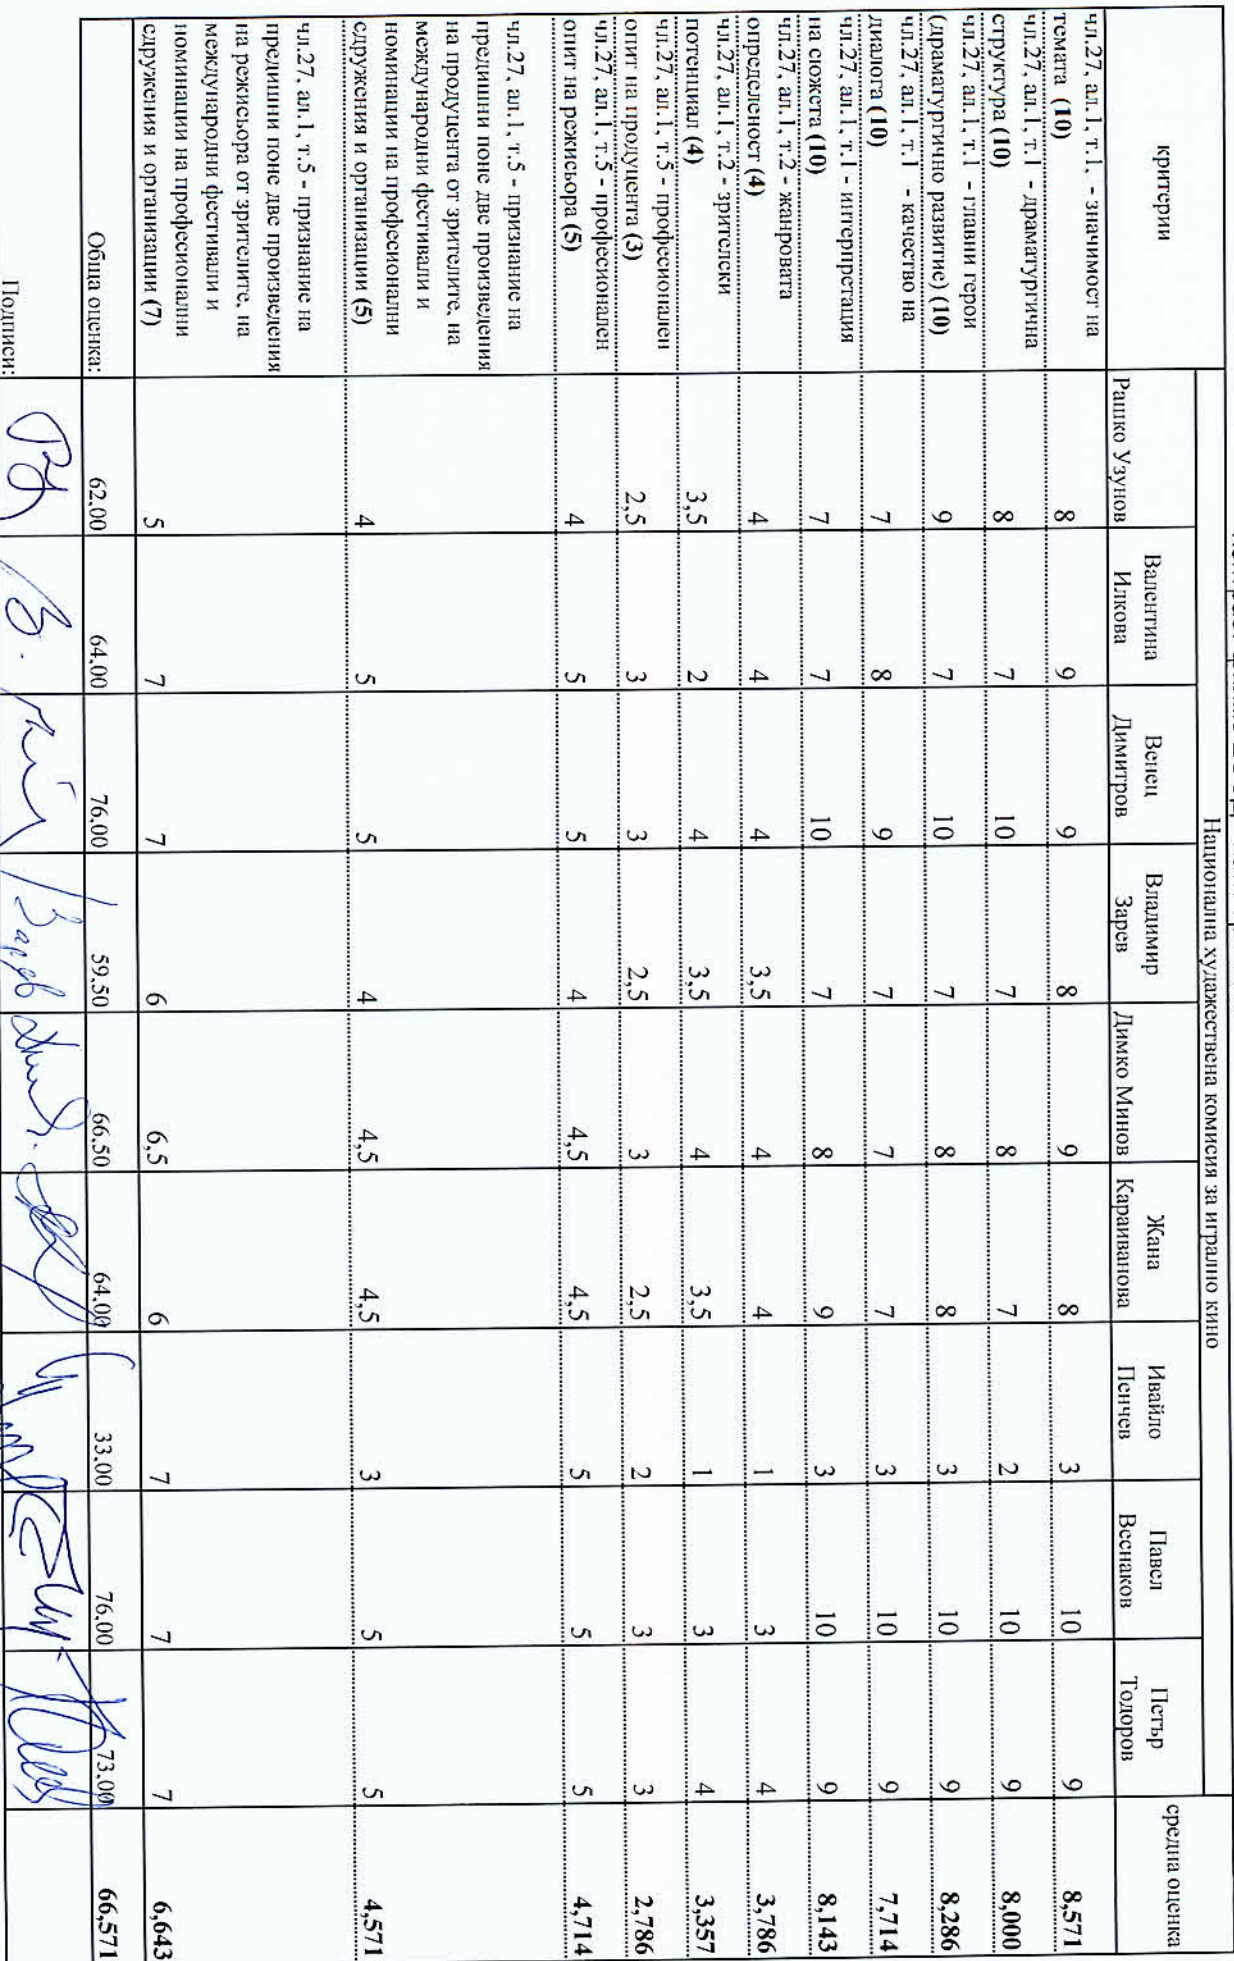 Национална художествена комисия за игрално кино
критерии
Рашко Узунов
Валентина Илкова
Венец Димитров
Владимир Зарев
Димко Минов
Жана Караиванова
Ивайло Пенчев
Павел Веснаков
Петър Тодоров
средна оценка
чл.27, ал.1, т.1. - значимост на
темата (10) 8 9 9 8 9 8 3 10 9 8,571
чл.27, ал.1, т.1 - драматургична
структура (10) 8 7 10 7 8 7 2 10 9 8,000
чл.27, ал.1, т.1 - главни герои
(драматургично развитие) (10) 9 7 10 7 8 8 3 10 9 8,286
чл.27, ал.1, т.1 - качество на
диалога (10) 7 8 9 7 7 7 3 10 9 7,714
чл.27, ал.1, т.1 - интерпретация
на сюжета (10) 7 7 10 7 8 9 3 10 9 8,143
чл.27, ал.1, т.2 - жанровата
определеност (4) 4 4 4 3,5 4 4 1 3 4 3,786
чл.27, ал.1, т.2 - зрителски
потенциал (4) 3,5 2 4 3,5 4 3,5 1 3 4 3,357
чл.27, ал.1, т.5 - професионален
опит на продуцента (3) 2,5 3 3 2,5 3 2,5 2 3 3 2,786
чл.27, ал.1, т.5 - професионален
опит на режисьора (5) 4 5 5 4 4,5 4,5 5 5 5 4,714
чл.27, ал.1, т.5 - признание на
предишни поне две произведения
на продуцента от зрителите, на
международни фестивали и
номинации на професионални
сдружения и организации (5) 4 5 5 4 4,5 4,5 3 5 5 4,571
чл.27, ал.1, т.5 - признание на
предишни поне две произведения
на режисьора от зрителите, на
международни фестивали и
номинации на професионални
сдружения и организации (7) 5 7 7 6 6,5 6 7 7 7 6,643
Обща оценка: 62.00 64.00 76.00 59.50 66.50 64.00 33.00 76.00 73.00 66,571
Подписи: